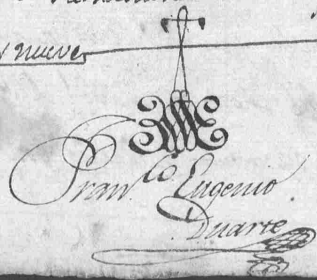 y nueve
Fran.co Eugenio
Duarte